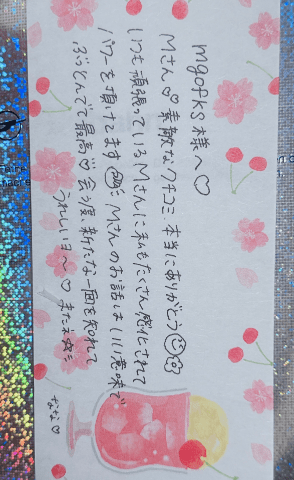 mgofks 様へ♡
Mさん♡ 素敵なクチコミ 本当にありがとう
いつも頑張っているMさんに私もたくさん感化されて
パワーを頂けてます Mさんのお話はいい意味で
ぶっとんでて最高♡ 会う度 新たな一面を知れて
うれしいヨ〜♡ またね
なな♡